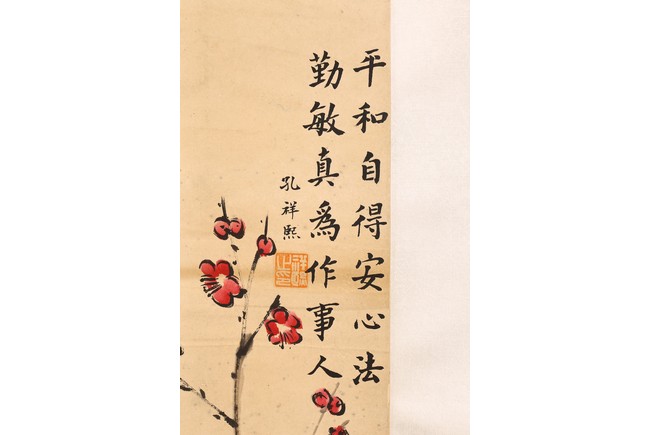 平和自得安心法
勤敏真為作事人
孔祥熙